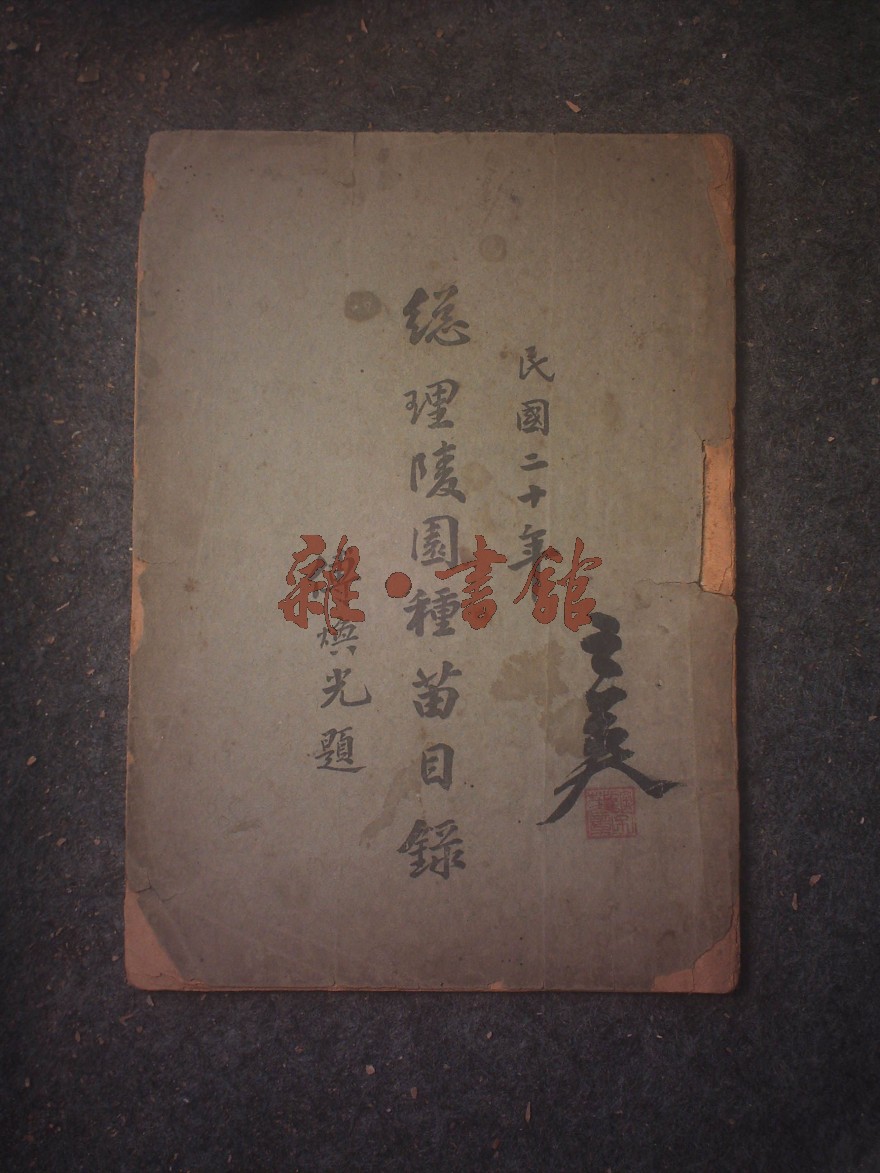 民國二十年
総理陵園種苗目錄
傅煥光題
雜·書館